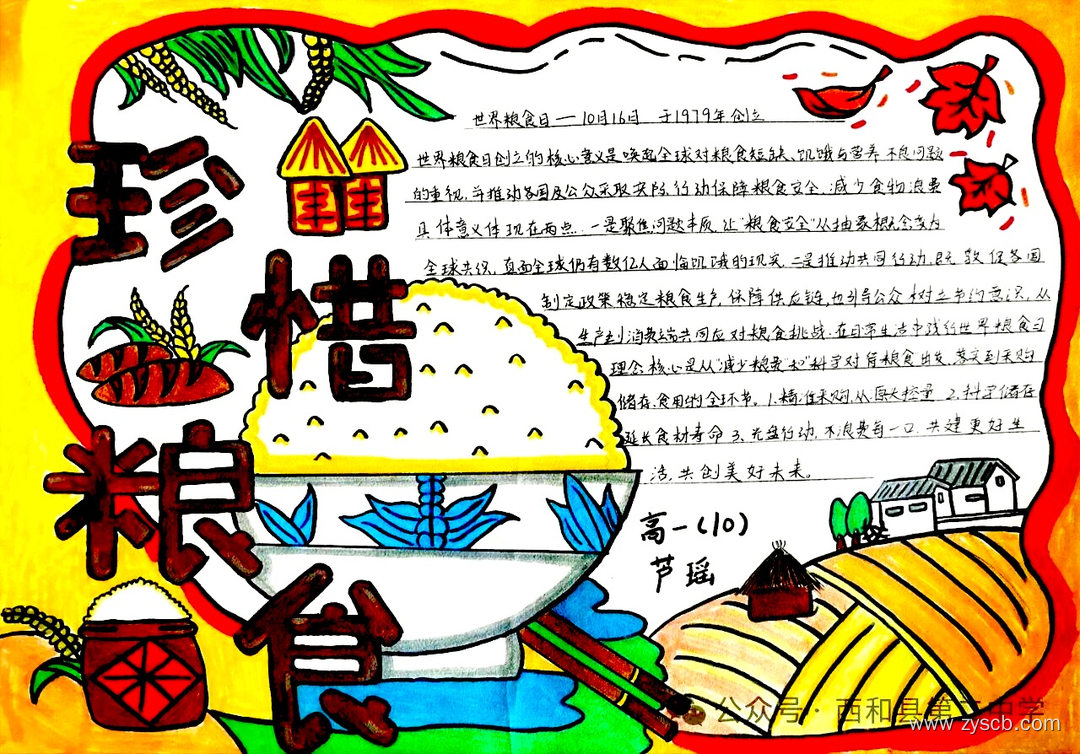 珍惜粮食
世界粮食日—10月16日 于1979年创立
世界粮食日创立的核心意义是唤起全球对粮食短缺、饥饿与营养不良问题
的重视,并推动各国及公众采取实际行动保障粮食安全、减少食物浪费
具体意义体现在两点,一是聚焦问题本质,让“粮食安全”从抽象概念变为
全球共识,直面全球仍有数亿人面临饥饿的现实,二是推动共同行动,既敦促各国
制定政策稳定粮食生产,保障供应链,也引导公众树立节约意识,从
生产到消费端共同应对粮食挑战。在日常生活中践行世界粮食日
理念核心是从“减少粮费”和“科学对待粮食出发,落实到采购
储存、食用的全环节。1.精准采购,从源头控量 2.科学储存
延长食材寿命 3、光盘行动,不浪费每一口,共建更好生
活,共创美好未来。
高一(10)
芦瑶
公众号·西和县第二中学
www.zyscb.com